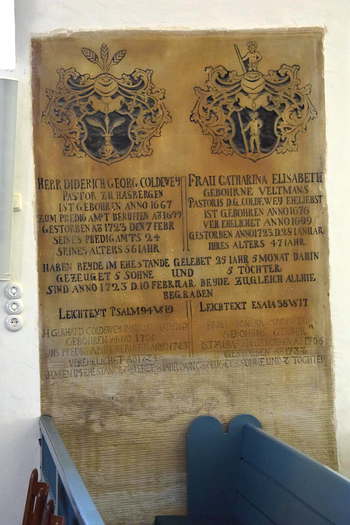 HERR DIDERICH GEORG COLDEWEY
PASTOR ZU HASBERGEN
IST GEBOREN ANNO 1667
ZUM PREDIG AMPT BERUFFEN AŌ 1699
GESTORBEN AŌ 1723 DEN 7 FEBR
SEINES PREDIG AMPTS 24
SEINES ALTERS 56 IAHR
FRAU CATHARINA ELISABETH
GEBOHRNE VELTMANS
PASTORIS D.G. COLDEWEY EHELIEBST
IST GEBOHREN ANNO 1676
VER EHELICHET ANNO 1699
GESTORBEN ANNO 1723 D. 28 IANUAR
IHRES ALTERS 47 IAHR
HABEN BEYDE IM EHE STANDE GELEBET 25 IAHR 5 MONAT DARIN
GEZEUGET 5 SÖHNE UND 5 TÖCHTER
SIND ANNO 1723 D. 10 FEBRUAR. BEYDE ZUGLEICH ALLHIE
BEGRABEN
LEICHTEXT PSALM 94 V 19
LEICHTEXT ESAIA 38 V 17
COLDEWEY
GEBOHREN
GEBOHRNE
VEREHELICHET
GESTORBEN
UND 2 TÖCHTER